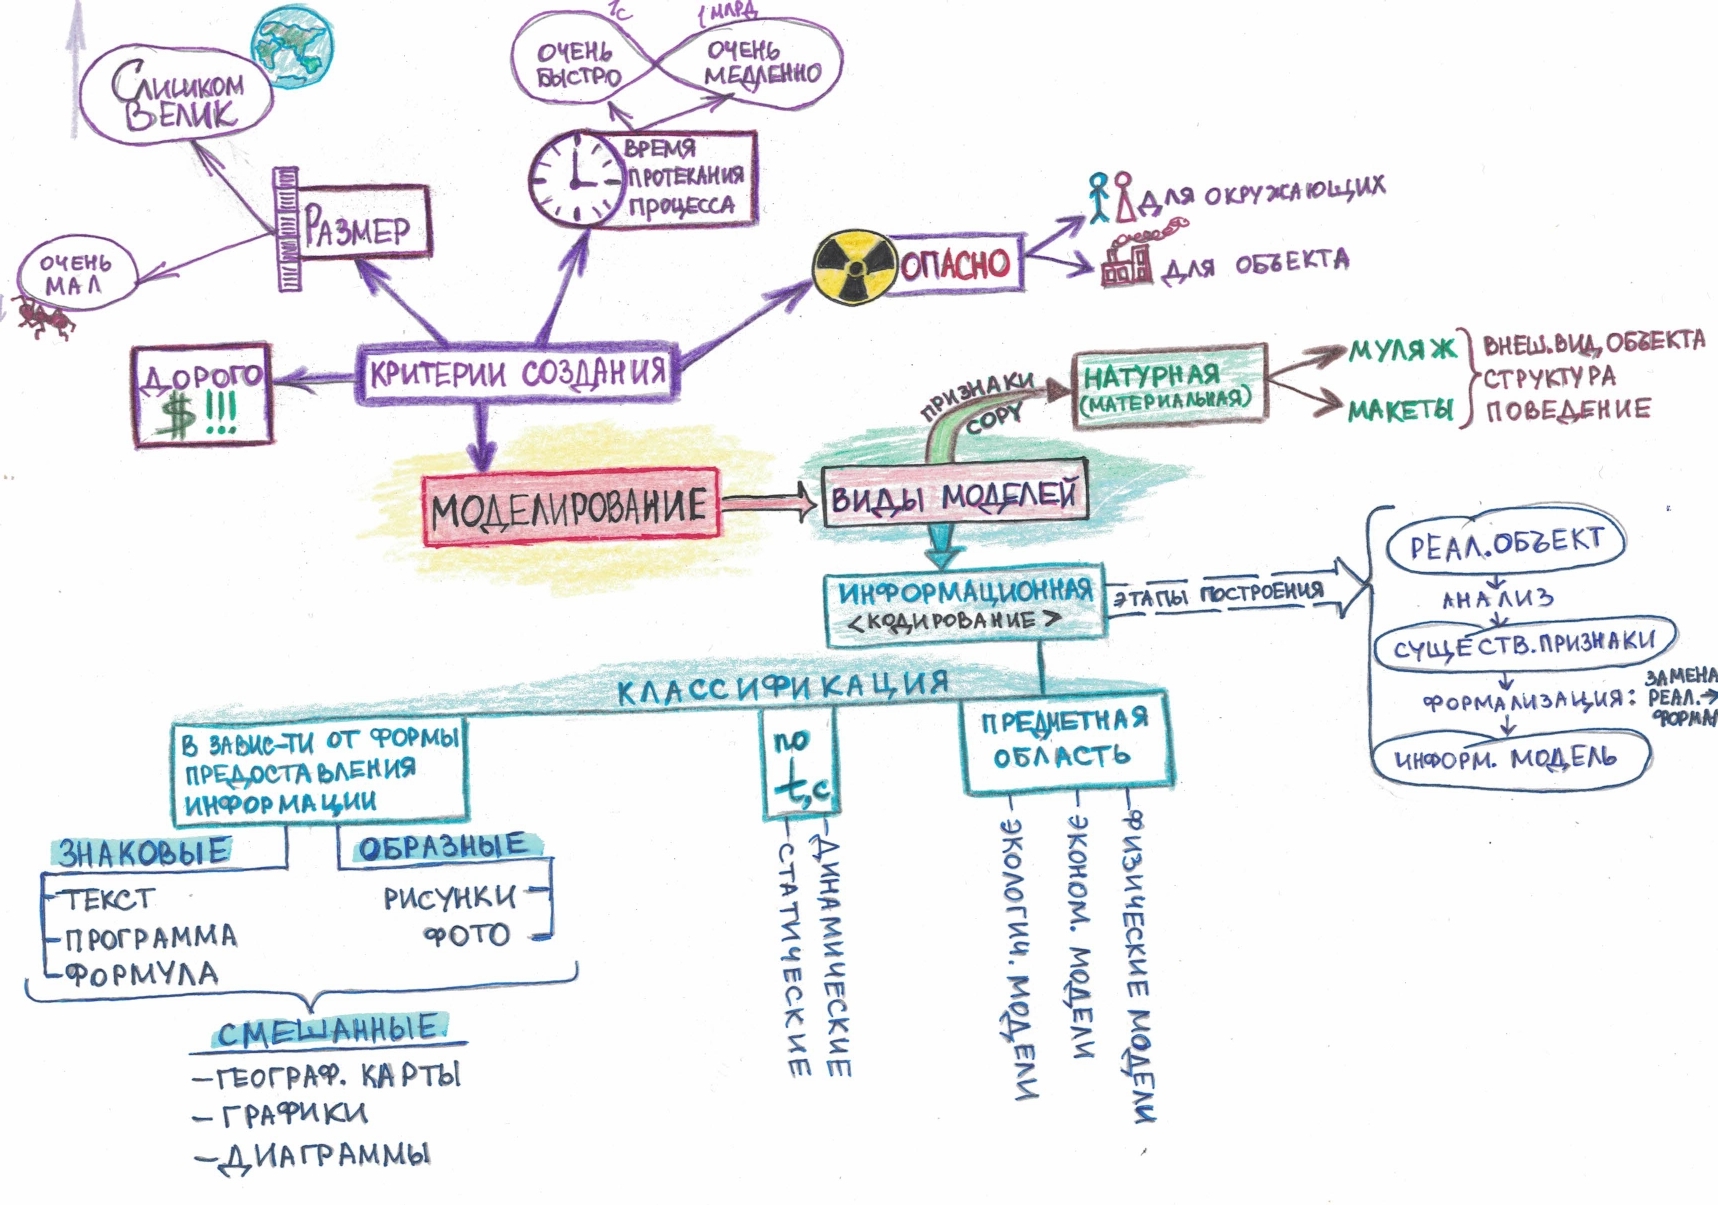 1с
1 МЛРД
СЛИШКОМ
ВЕЛИК
ОЧЕНЬ
БЫСТРО
ОЧЕНЬ
МЕДЛЕННО
ВРЕМЯ
ПРОТЕКАНИЯ
ПРОЦЕССА
РАЗМЕР
ОЧЕНЬ
МАЛ
ОПАСНО
ДЛЯ ОКРУЖАЮЩИХ
ДЛЯ ОБЪЕКТА
ДОРОГО
$ !!!
КРИТЕРИИ СОЗДАНИЯ
МОДЕЛИРОВАНИЕ
ВИДЫ МОДЕЛЕЙ
ПРИЗНАКИ
COPY
НАТУРНАЯ
(МАТЕРИАЛЬНАЯ)
МУЛЯЖ
МАКЕТЫ
ВНЕШ.ВИД ОБЪЕКТА
СТРУКТУРА
ПОВЕДЕНИЕ
ИНФОРМАЦИОННАЯ
<КОДИРОВАНИЕ>
ЭТАПЫ ПОСТРОЕНИЯ
РЕАЛ.ОБЪЕКТ
АНАЛИЗ
СУЩЕСТВ.ПРИЗНАКИ
ФОРМАЛИЗАЦИЯ:
ЗАМЕНА
РЕАЛ.→
ФОРМАЛ
ИНФОРМ. МОДЕЛЬ
КЛАССИФИКАЦИЯ
В ЗАВИС-ТИ ОТ ФОРМЫ
ПРЕДОСТАВЛЕНИЯ
ИНФОРМАЦИИ
ЗНАКОВЫЕ
-ТЕКСТ
-ПРОГРАММА
-ФОРМУЛА
ОБРАЗНЫЕ
РИСУНКИ
ФОТО
СМЕШАННЫЕ
-ГЕОГРАФ. КАРТЫ
-ГРАФИКИ
-ДИАГРАММЫ
по
t,с
-СТАТИЧЕСКИЕ
-ДИНАМИЧЕСКИЕ
ПРЕДМЕТНАЯ
ОБЛАСТЬ
-ЭКОЛОГИЧ. МОДЕЛИ
-ЭКОНОМ. МОДЕЛИ
-ФИЗИЧЕСКИЕ МОДЕЛИ